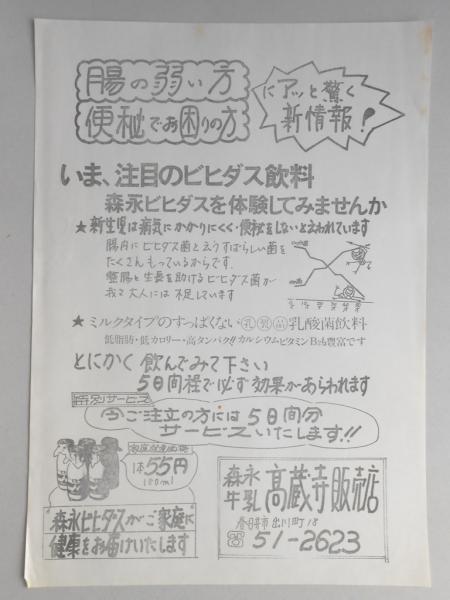 腸の弱い方
便秘でお困りの方
にアッと驚く
新情報!
いま、注目のビヒダス飲料
森永ビヒダスを体験してみませんか
★新生児は病気にかかりにくく・便秘をしないと云われています
腸内にビヒダス菌と云うすばらしい菌を
たくさんもっているからです.
整腸と生長を助けるビヒダス菌が
我々大人には不足しています
★ミルクタイプのすっぱくない乳製品乳酸菌飲料
低脂肪・低カロリー・高タンパク!!カルシウムビタミンB₂も豊富です
とにかく飲んでみて下さい
5日間程で必ず効果があらわれます
特別サービス
ご注文の方には5日間分
サービスいたします!!
1本55円
180ml
"森永ビヒダスがご家庭に
健康をお届けいたします"
森永
牛乳
高蔵寺販売店
春日井市出川町18
☎51-2623